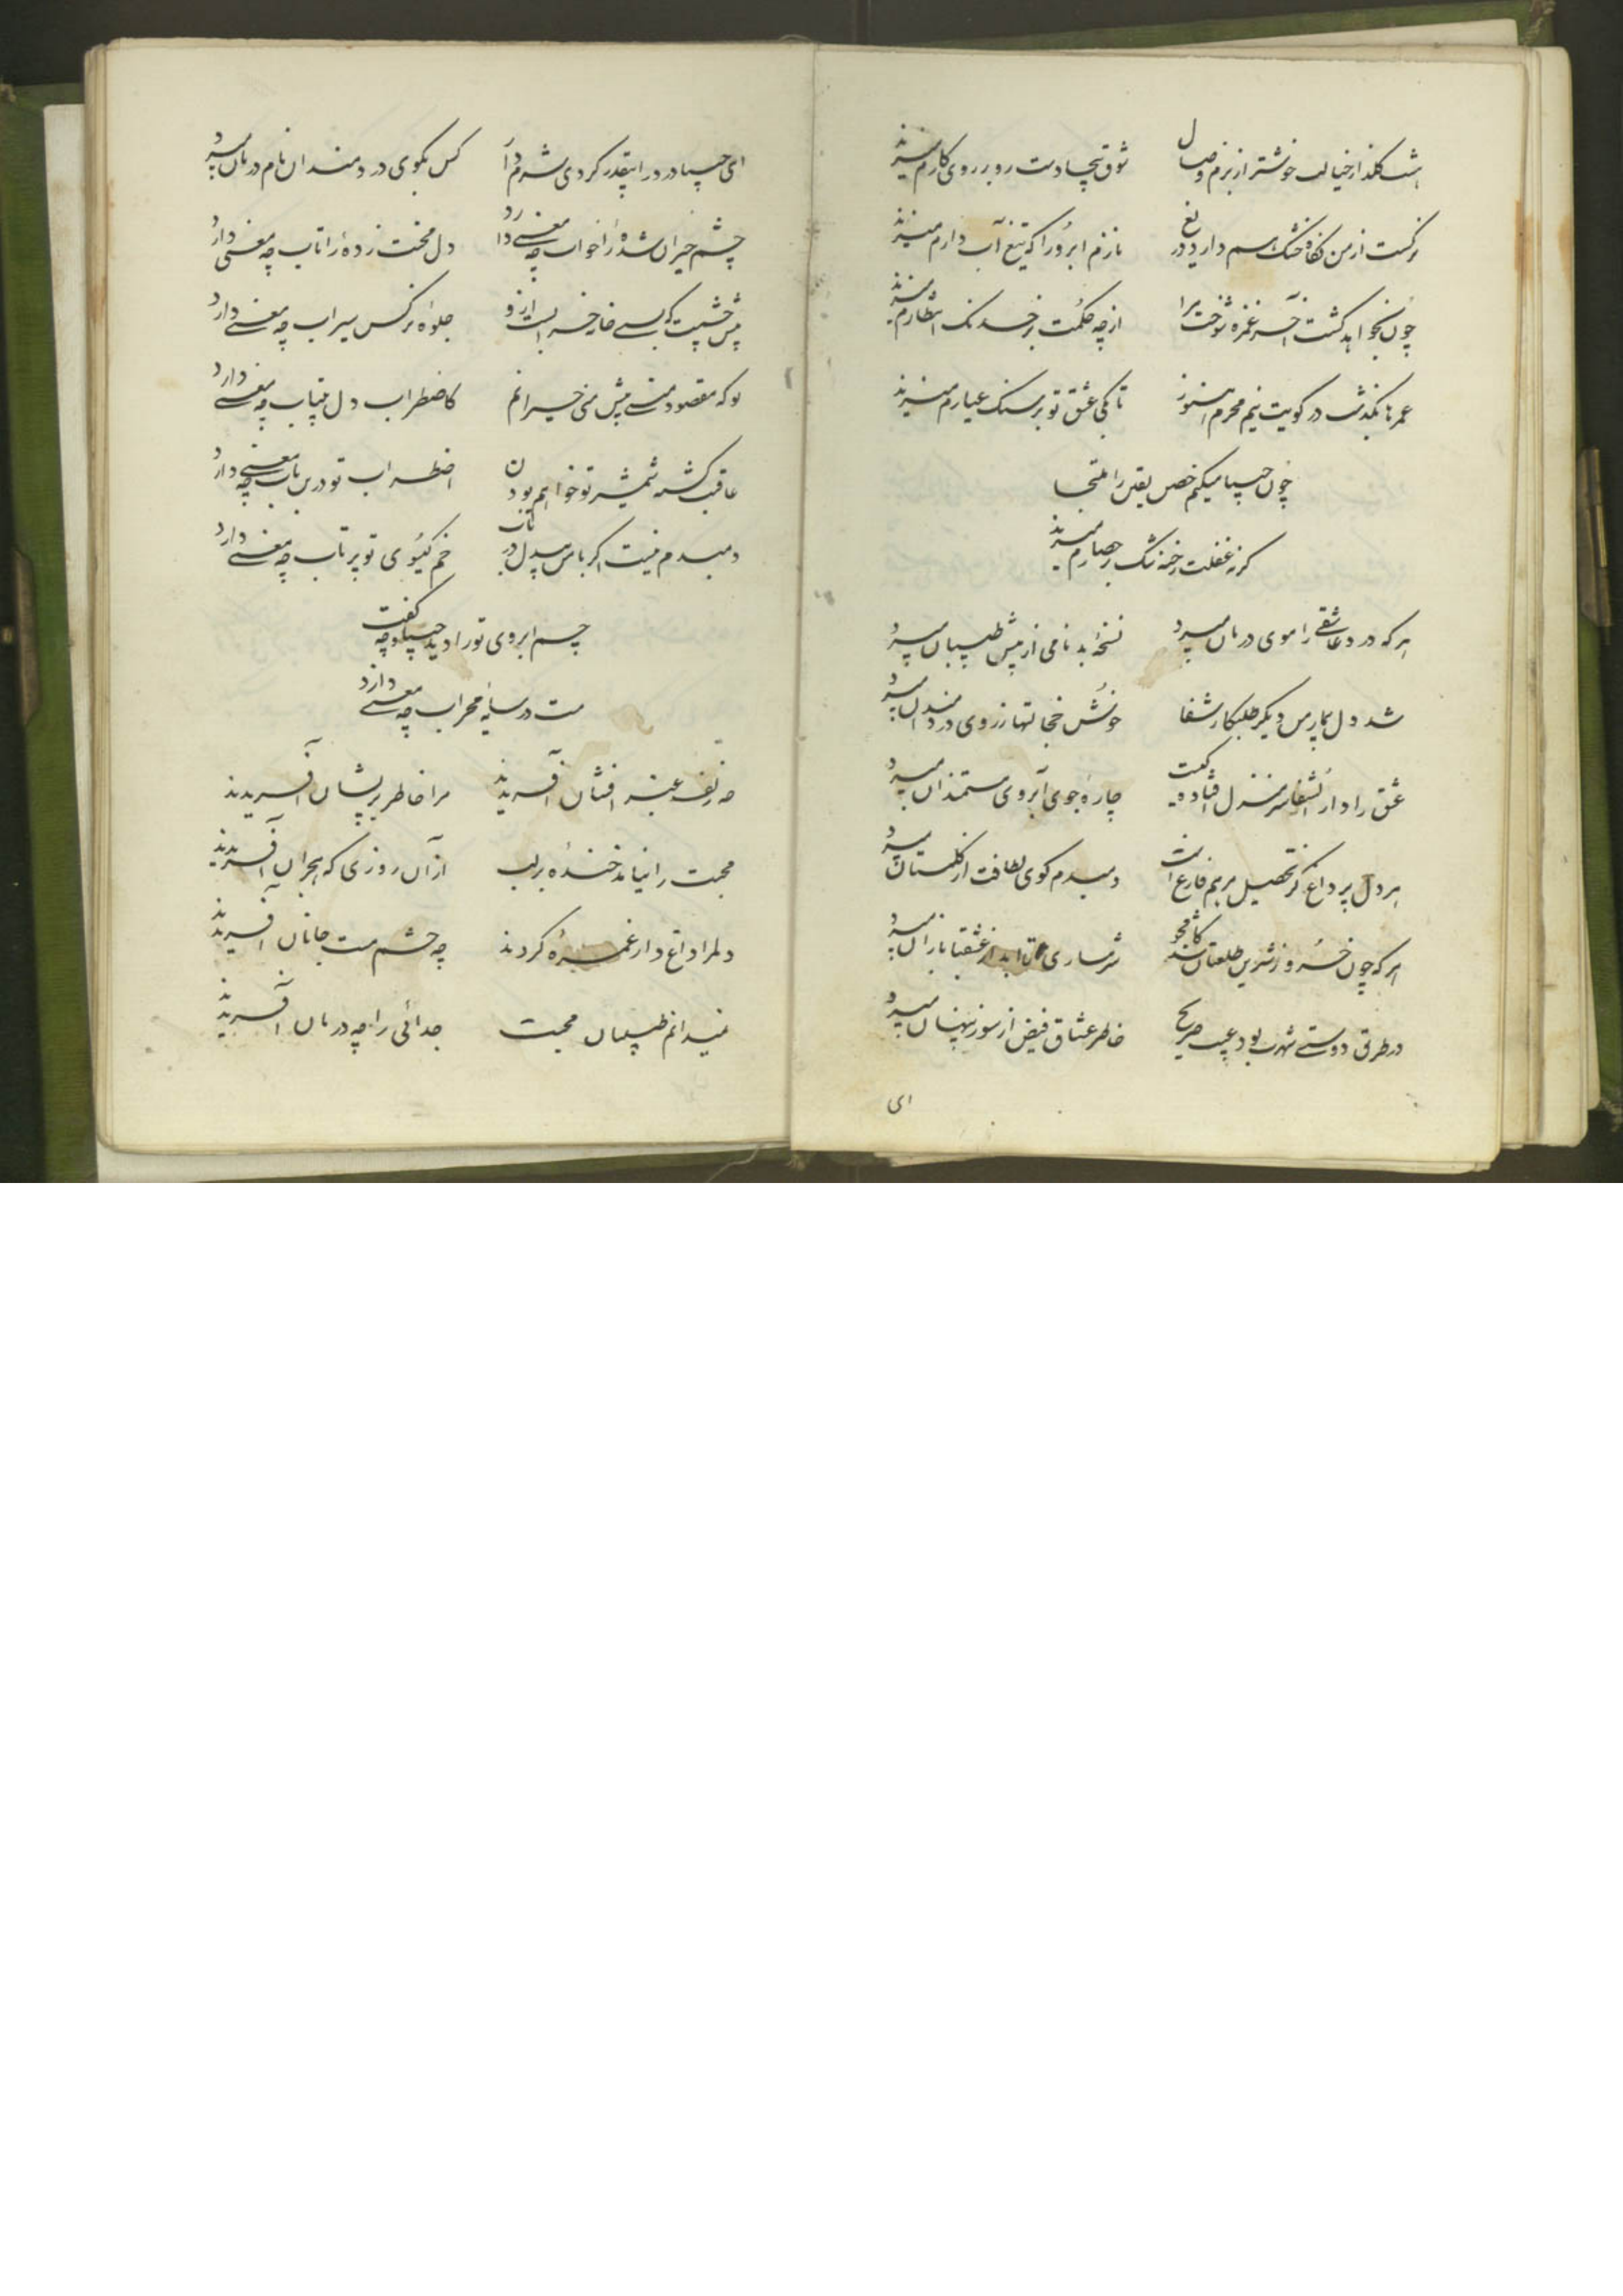 خوشتر از بزم وصال شوق رو بر روی کارم میزند
نرکست از من دارد دریغ نازم ابرو را که تیغ آب دارم میزند
چون نخواهد کشت آخر غمزه شوخت مرا از چه حکمت بر سنک انتظارم میزند
عمرها بگذشت در کویت نیم محرم هنوز تا بکی عشق تو بر سنک عیارم میزند
چون حیا میکنم را ملتجا
کز غفلت رخنه حصارم میزند
هر که درد عاشقی را سوی درمان میبرد نسخهٔ بدنامی از پیش طبیبان میبرد
شد دل بیمار من دیگر طلبکار شفا خجالتها ز روی دردمندان میبرد
عشق را دار الشفا سر منزل چاره جوی آبروی مستمندان میبرد
هر دل پر داغ کز تحصیل مرهم فارغ است دمبدم کوی لطافت از کلستان میبرد
هر که چون خسرو ز شیرین طلعتان شد کامجو شرمساری تا ابد از عشقبازان میبرد
در طریق دوستی شهرت بود عیب صریح خاطر عشاق فیض از سوز پنهان میبرد
ای
ای حیا درد را اینقدر کردی شرم دار کس بکوی دردمندان نام درمان میبرد
چشم حیران شده را خواب چه معنی دارد دل محنت زده را تاب چه معنی دارد
پیش جلوهٔ نرکس سیراب چه معنی دارد
تو که مقصود منی پیش منی حیرانم کاضطراب دل بیتاب چه معنی دارد
عاقبت کشته شمشیر تو خواهم بودن اضطراب تو درین باب چه معنی دارد
دمبدم نیست اکر با من بیدل در تاب خم کیسوی تو پر تاب چه معنی دارد
چشم ابروی تو را دید حیا و چه گفت
مست در سایهٔ محراب چه معنی دارد
چه زلف عنبر افشان آفریدند مرا خاطر پریشان آفریدند
محبت را نیامد خنده بر لب از آن روزی که هجران آفریدند
دلم را داغدار غمزه کردند چه چشم مست جانان آفریدند
نمیدانم طبیبان محبت جدائی را چه درمان آفریدند